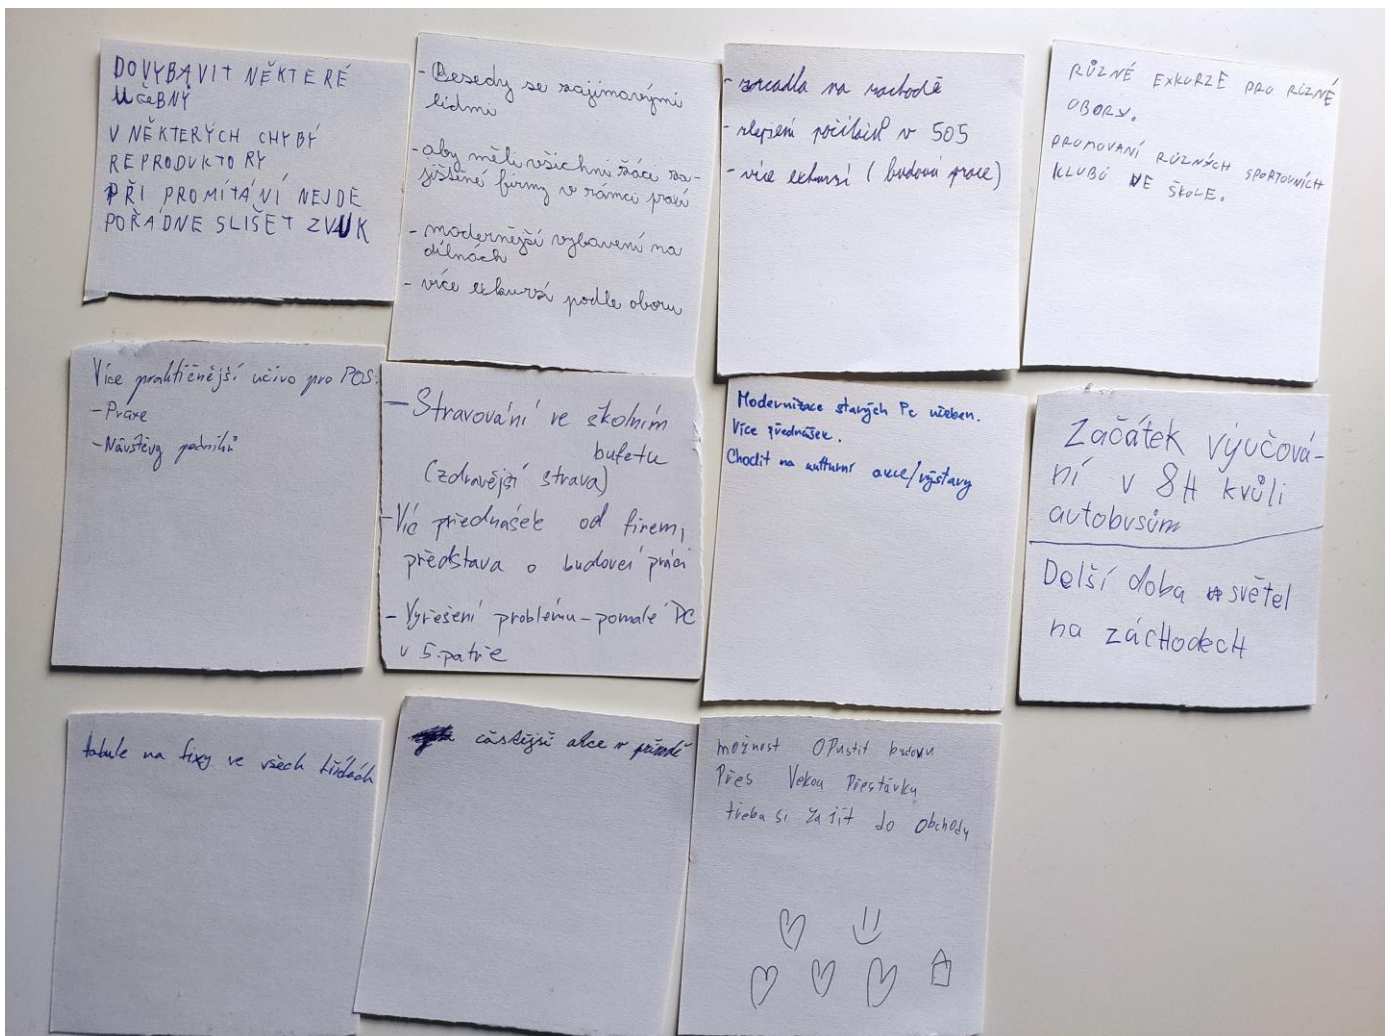 DOVYBAVIT NĚKTERÉ
UČEBNY
V NĚKTERÝCH CHYBÝ
REPRODUKTORY
PŘI PROMÍTÁNÍ NEJDE
POŘÁDNE SLIŠET ZVUK
- Besedy se zajímavými
lidmi
- aby měli všichni žáci za-
jištěné firmy v rámci praxí
- modernější vybavení na
dílnách
- více exkurzí podle oboru
- zrcadla na záchodě
- zlepšení počítačů v 505
- více exkurzí (budoucí práce)
RŮZNÉ EXKURZE PRO RŮZNÉ
OBORY.
PROMOVANÍ RŮZNÝCH SPORTOVNÍCH
KLUBŮ VE ŠKOLE.
Více praktičnější učivo pro POS:
- Praxe
- Návštěvy podniků
- Stravování ve školním
bufetu
(zdravější strava)
- Víc přednášek od firem,
představa o budoucí práci
- Vyřešení problému - pomalé PC
v 5. patře
Modernizace starých Pc učeben.
Více přednášek.
Chodit na kulturní akce/výstavy
Začátek výučová-
ní v 8H kvůli
autobusům
Delší doba světel
na záchodech
tabule na fixy ve všech třídách
častější akce v přírodě
možnost opustit budovu
Přes Vekou Přestávku
třeba si zajít do obchodu